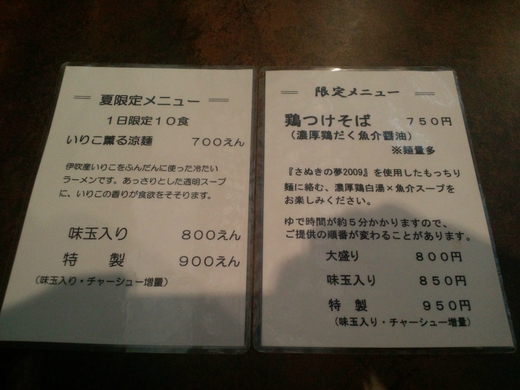 夏限定メニュー
1日限定10食
いりこ薫る涼麺 700えん
伊吹産いりこをふんだんに使った冷たい
ラーメンです。あっさりとした透明スープ
に、いりこの香りが食欲をそそります。
味玉入り 800えん
特製 900えん
(味玉入り・チャーシュー増量)
限定メニュー
鶏つけそば 750円
(濃厚鶏だく魚介醤油)
※麺量多
『さぬきの夢2009』を使用したもっちり
麺に絡む、濃厚鶏白湯×魚介スープを
お楽しみください。
ゆで時間が約5分かかりますので、
ご提供の順番が変わることがあります。
大盛り 800円
味玉入り 850円
特製 950円
(味玉入り・チャーシュー増量)